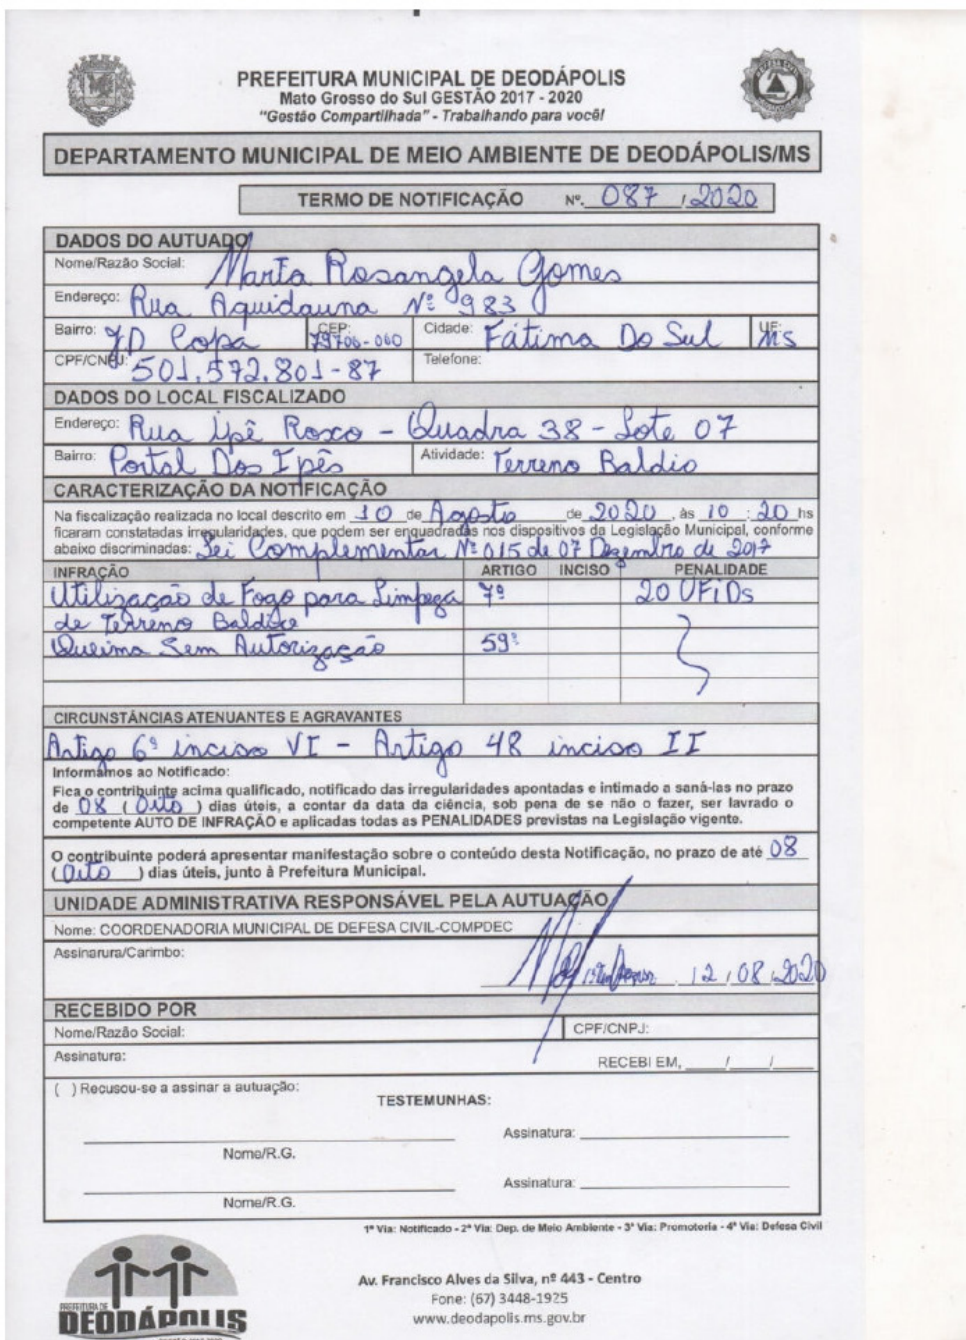 PREFEITURA MUNICIPAL DE DEODÁPOLIS
Mato Grosso do Sul GESTÃO 2017 - 2020
"Gestão Compartilhada" - Trabalhando para você!
DEPARTAMENTO MUNICIPAL DE MEIO AMBIENTE DE DEODÁPOLIS/MS
TERMO DE NOTIFICAÇÃO Nº. 087 / 2020
DADOS DO AUTUADO
Nome/Razão Social: Marta Rosangela Gomes
Endereço: Rua Aquidauna Nº 983
Bairro: JD Copa CEP: 79700-000 Cidade: Fátima Do Sul UF: MS
CPF/CNPJ: 501.572.801-87 Telefone:
DADOS DO LOCAL FISCALIZADO
Endereço: Rua Ipê Roxo - Quadra 38 - Lote 07
Bairro: Portal Dos Ipês Atividade: Terreno Baldio
CARACTERIZAÇÃO DA NOTIFICAÇÃO
Na fiscalização realizada no local descrito em 10 de Agosto de 2020, às 10 : 20 hs
ficaram constatadas irregularidades, que podem ser enquadradas nos dispositivos da Legislação Municipal, conforme
abaixo discriminadas: Lei Complementar Nº 015 de 07 Dezembro de 2017
INFRAÇÃO ARTIGO INCISO PENALIDADE
Utilização de Fogo para Limpeza 7º 20 UFiDs
de Terreno
Queima Sem Autorização 59º
CIRCUNSTÂNCIAS ATENUANTES E AGRAVANTES
Artigo 6º inciso VI - Artigo 48 inciso II
Informamos ao Notificado:
Fica o contribuinte acima qualificado, notificado das irregularidades apontadas e intimado a saná-las no prazo
de 08 ( Oito ) dias úteis, a contar da data da ciência, sob pena de se não o fazer, ser lavrado o
competente AUTO DE INFRAÇÃO e aplicadas todas as PENALIDADES previstas na Legislação vigente.
O contribuinte poderá apresentar manifestação sobre o conteúdo desta Notificação, no prazo de até 08
( Oito ) dias úteis, junto à Prefeitura Municipal.
UNIDADE ADMINISTRATIVA RESPONSÁVEL PELA AUTUAÇÃO
Nome: COORDENADORIA MUNICIPAL DE DEFESA CIVIL-COMPDEC
Assinarura/Carimbo:
12 / 08 / 2020
RECEBIDO POR
Nome/Razão Social: CPF/CNPJ:
Assinatura: RECEBI EM, ____/____/____
( ) Recusou-se a assinar a autuação:
TESTEMUNHAS:
Assinatura:
Nome/R.G.
Assinatura:
Nome/R.G.
1ª Via: Notificado - 2ª Via: Dep. de Meio Ambiente - 3ª Via: Promotoria - 4ª Via: Defesa Civil
PREFEITURA DE
DEODÁPOLIS
Av. Francisco Alves da Silva, nº 443 - Centro
Fone: (67) 3448-1925
www.deodapolis.ms.gov.br